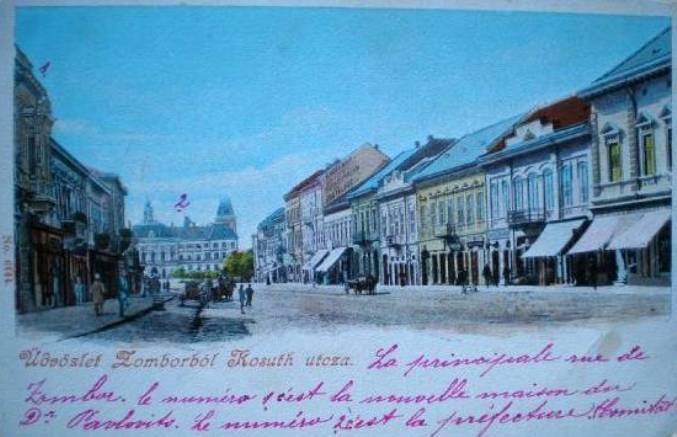 1
2
No. 6144
Üdvözlet Zomborból Kosuth utcza. La principale rue de
Zombor. le numéro 1 c'est la nouvelle maison du
Dr Pavlovits. Le numéro 2 c'est la préfecture